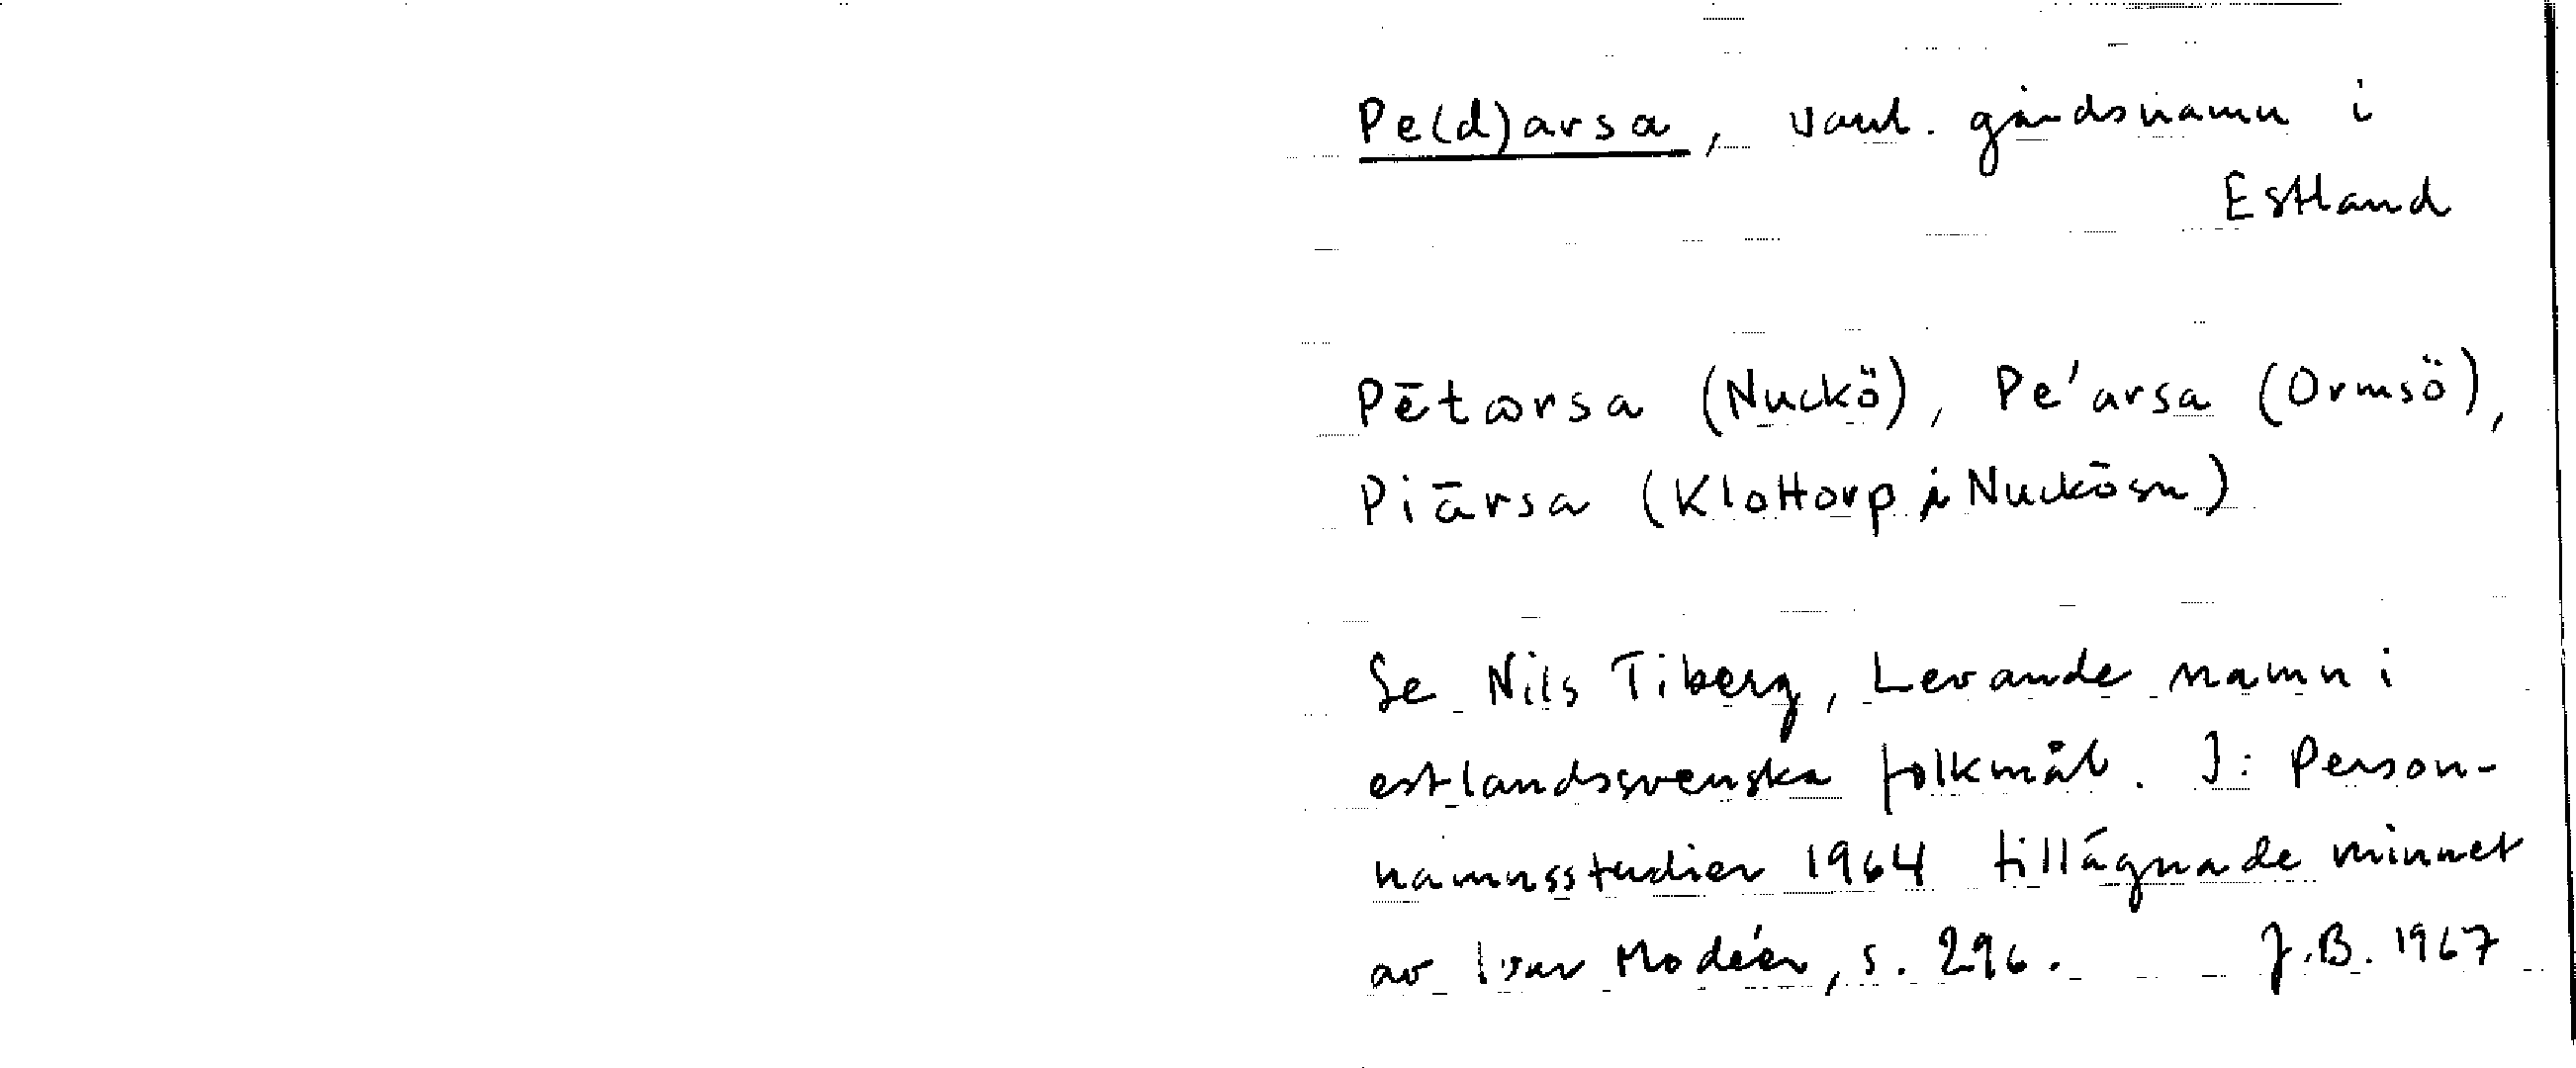 Pe(d)arsa, vanl. gårdsnamn i
Estland
Pētarsa (Nuckö), Pe'arsa (Ormsö),
Piārsa (Klottorp i Nuckösn)
Se Nils Tiberg, Levande namn i
estlandssvenska folkmål. I: Person-
namnsstudier 1964 tillägnade minnet
av Ivar Modéer, s. 296. J.B. 1967